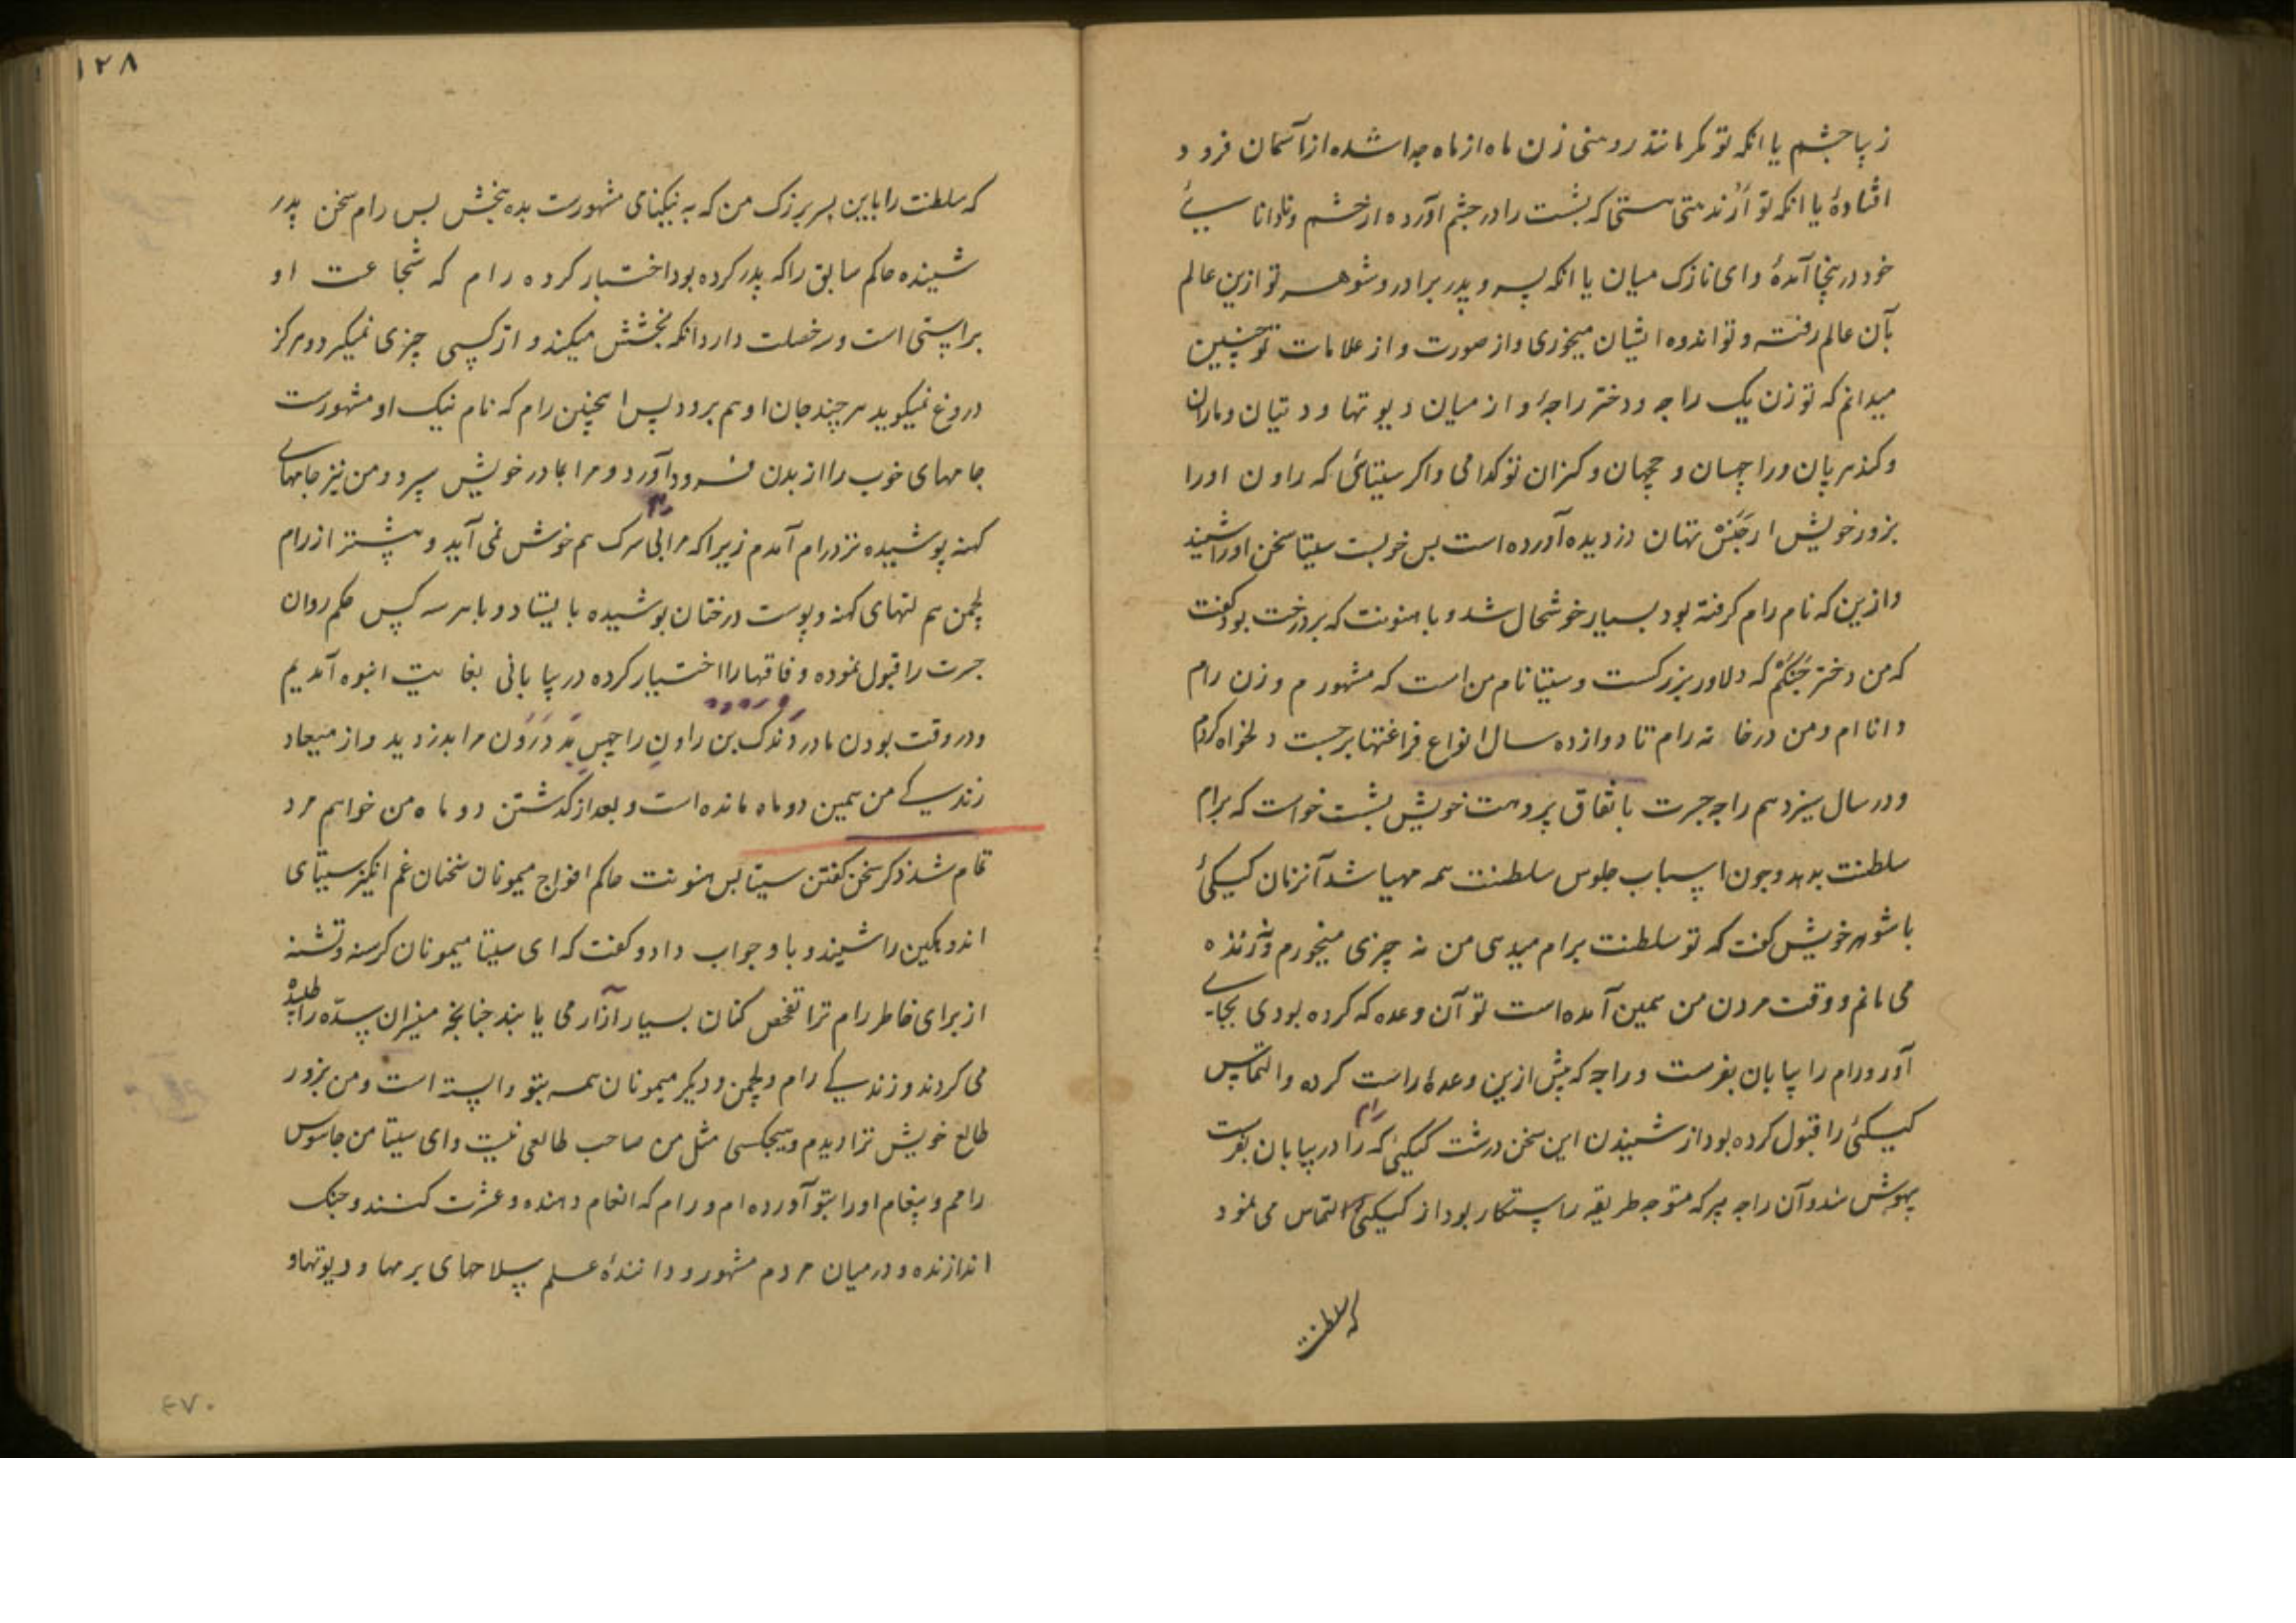 زیبا چشم یا انکه تو مکر مانند روهنی زن ماه از ماه جدا شده از آسمان فرود
افتادهٔ یا انکه تو اَرُندهتی هستی که بشست را در چشم آورده از خشم و نادانا سیٔ
خود درینجا آمدهٔ و ای نازک میان یا انکه پسر و پدر برادر و شوهر تو ازین عالم
بآن عالم رفته و تو اندوه ایشان میخوری و از صورت و از علامات تو چنین
میدانم که تو زن یک راجه و دختر راجهٔ و از میان دیوتها و دتیان و ماران
و کندهرپان و راچسان و جچهان و کنران تو کدامی و اکر سیتائی که راون اورا
بزور خویش از جَنَسْتهان دزدیده آورده است بس خوبست سیتا سخن اورا شنید
و ازین که نام رام کرفته بود بسیار خوشحال شد و با هنونت که بر درخت بود کفت
که من دختر جَنَکَم که دلاور بزرکست و سیتا نام من است که مشهورم و زن رام
دانا ام و من در خانه رام تا دوازده سال انواع فراغتها برحسب دلخواه کردم
و در سال سیزدهم راجه جسرت باتفاق پروهت خویش بشست خواست که برام
سلطنت بدهد و چون اسباب جلوس سلطنت همه مهیا شد آنزمان کیکئی
با شوهر خویش کفت که تو سلطنت برام میدهی من نه چیزی میخورم و نه زنده
می مانم و وقت مردن من همین آمده است تو آن وعده که کرده بودی بجای
آور و رام را بیابان بفرست و راجه که پیش ازین وعدهٔ راست کرده و التماس
کیکئی را قبول کرده بود از شنیدن این سخن درشت کیکئی که رام را در بیابان بفرست
بیهوش شد و آن راجه پیر که متوجه طریقه راستکار بود از کیکئی التماس می نمود
که سلطنت
۱۲۸
که سلطنت را باین پسر بزرک من که به نیکنامی مشهورست بده ببخش بس رام سخن پدر
شنیده حاکم سابق را که پدر کرده بود اختیار کرده رام که شجاعت او
براستی است و سه خصلت دارد انکه بخشش میکند و از کسی چیزی نمیکیرد و هرکز
دروغ نمیکوید هر چند جان او هم برود پس اینچنین رام که نام نیک او مشهورست
جامهای خوب را از بدن فرود آورد و مرا بمادر خویش سپرد و من نیز جامهای
کهنه پوشیده نزد رام آمدم زیرا که مرا بی رام سرک هم خوش نمی آید و پیشتر از رام
لچمن هم لتهای کهنه و پوست درختان پوشیده بایستاد و ما هر سه کس حکم روان
جسرت را قبول نموده و فاقها را اختیار کرده در بیابانی بغایت انبوه آمدیم
و در وقت بودن ما در دَندَک بن راون راچس بد درون مرا بدزدید و از میعاد
زندگی من همین دو ماه مانده است و بعد از کذشتن دو ماه من خواهم مرد
تمام شد ذکر سخن کفتن سیتا بس هنونت حاکم افواج میمونان سخنان غم انکیز سیتای
اندوهکین را شنید و با او جواب داد و کفت که ای سیتا میمونان کرسنه و تشنه
از برای خاطر رام ترا تفحص کنان بسیار آزار می یابند چنانچه میزان سدّه را طلبیده
می کردند و زندگی رام و لچمن و دیکر میمونان همه بتو وابسته است و من بزور
طالع خویش ترا دیدم و هیچکسی مثل من صاحب طالعی نیست و ای سیتا من جاسوس
رامم و پیغام اورا بتو آورده ام و رام که انعام دهنده و عشرت کننده و جنک
اندازنده و در میان مردم مشهور و دانندهٔ علم سلاحهای برمها و دیوتها و
۴۷۰